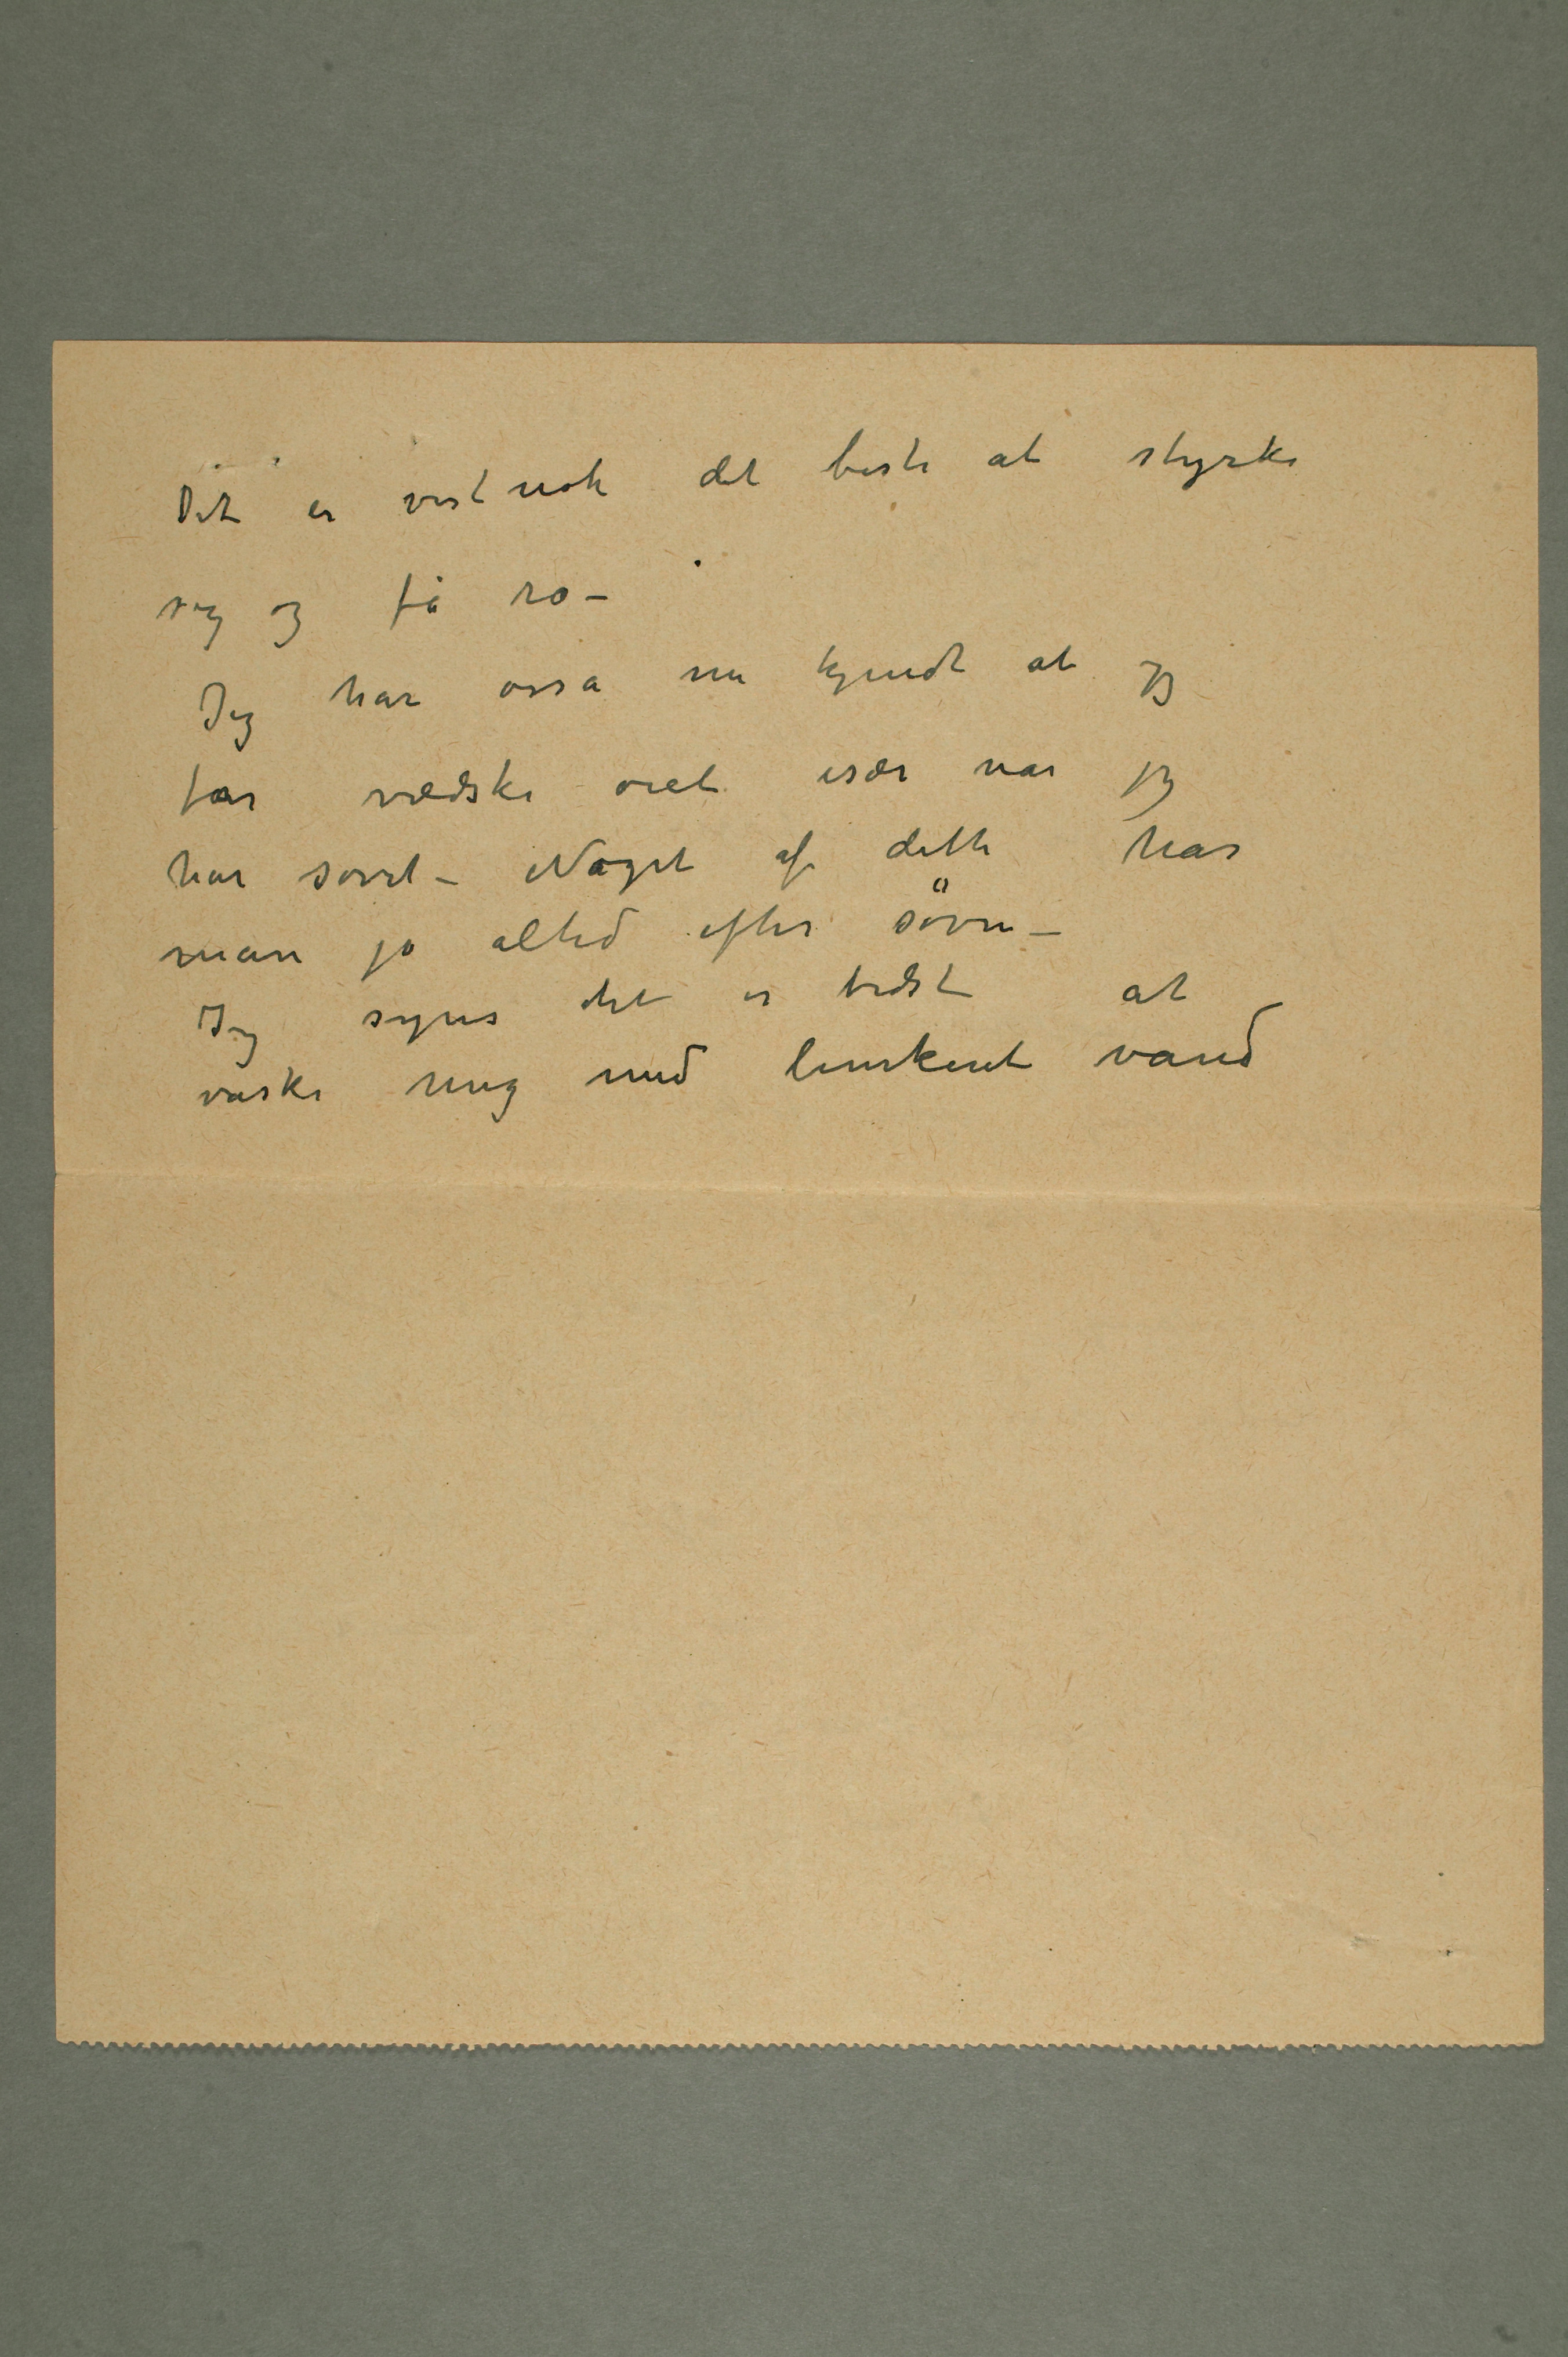 Det er vist nok det beste at styrke
sig og få ro –
Jeg har ossa nu kjendt at jeg
får vædske øiet især når jeg
har sovet – Noget af dette har
man jo altid efter søvn –
Jeg synes det er bedst at
vaske mig med lunkent vand